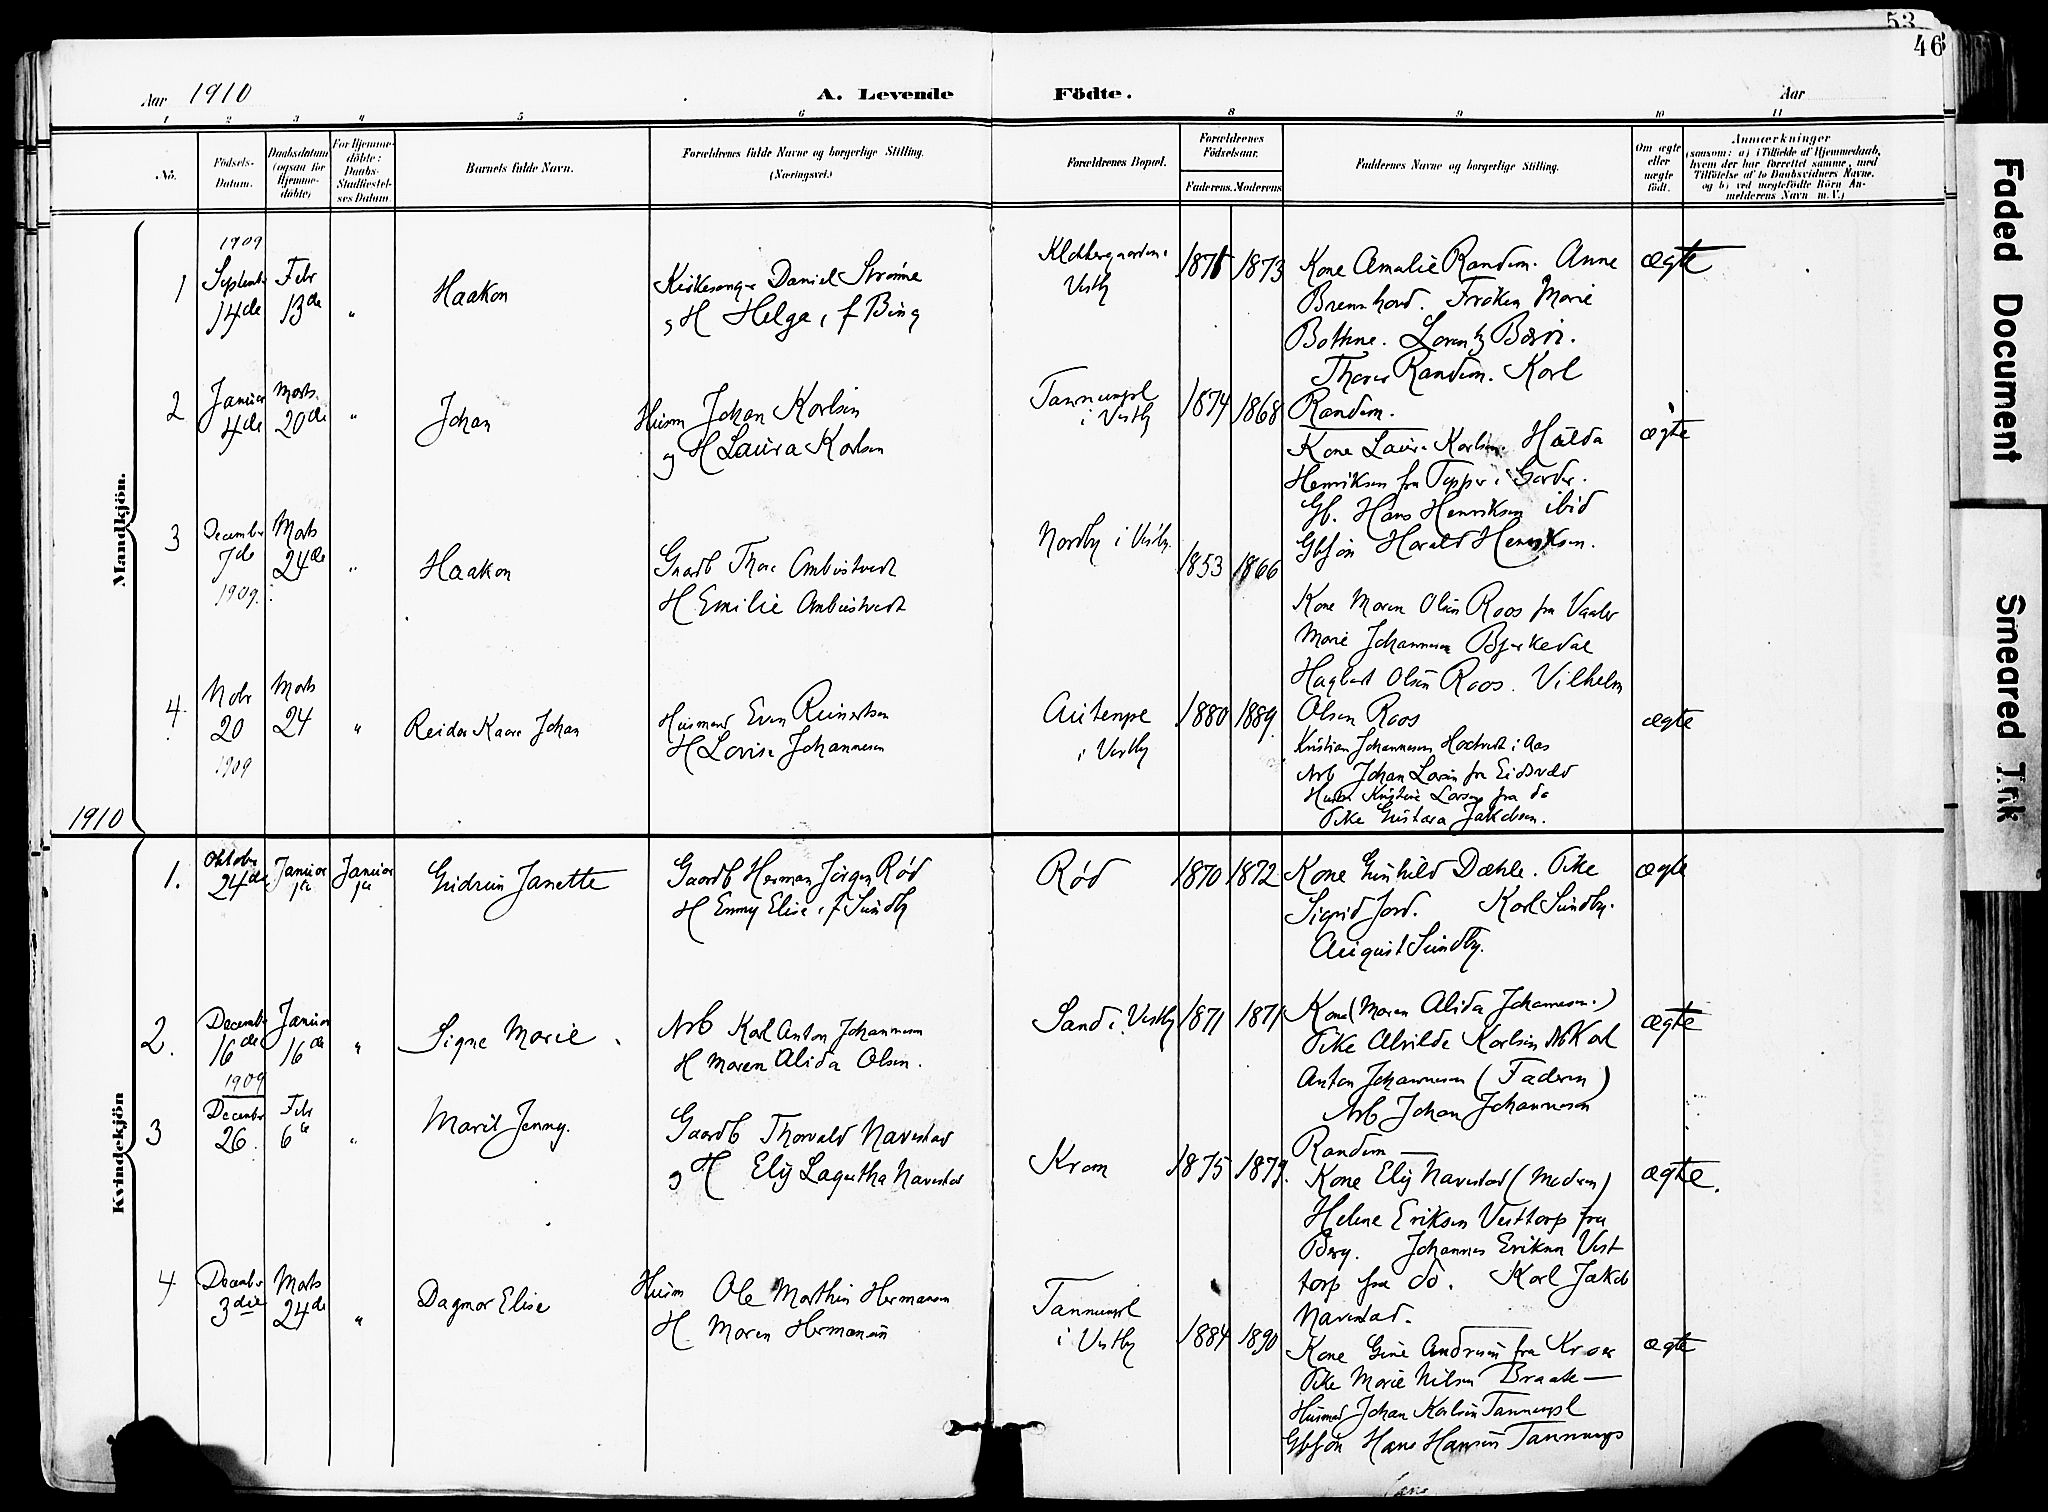 53
46
Aar 1910
A. Levende Födte.
Aar
1 2 3 4 5 6 8 9 10 11
No.
Födsels-Datum.
Daabsdatum (ogsaa for Hjemmedöbte)
For Hjemmedöbte: Daabs-Stadfæstelses Datum.
Barnets fulde Navn.
Forældrenes fulde Navne og borgerlige Stilling. (Næringsvei.)
Forældrenes Bopæl.
Forældrenes Födselsaar.
Faderens. Moderens
Faddernes Navne og borgerlige Stilling.
Om ægte eller uægte født.
Anmærkninger
(saasom: a) i Tilfælde af Hjemmedaab, hvem der har forrettet samme, med Tilföielse af to Daabsvidners Navne, og b) ved uægtefödte Börn Anmelderens Navn m.V.)
Faded Document
Smeared Trik
Mandkjön.
1909
1 Septemb. 14de Febr 13de " Haakon
Kirkesanger Daniel Strøme
og H Helga, f Bing
Vestby
1873
Kone Amalie Randem. Anne
Frøken Marie
Bothne. Lorentz
Thora Randem. Karl
Randem.
ægte
2 Januar 4de Marts 20de " Johan
Husm Johan Karlsen
og H Laura Karlsen
i Vestby
1874 1868
Kone Laura Karlsen. Hulda
Henriksen fra Topper i Garder.
Gb. Hans Henriksen ibid
Gbsøn Harald Henriksen.
ægte
3 December 7de 1909. Marts 24de " Haakon
Gaardb Thore Ambustvedt
H Emilie Ambustvedt
Nordby i Vestby.
1853 1866
Kone Maren Olsen Roos fra Vaaler
Marie Johannesen Bjerkedal
Hagbart Olsen Roos. Vilhelm
Olsen Roos
4. Nobr 20 1909 Marts 24 " Reidar Kaare Johan
Husmand Even Reinertsen
H Lovise Johannesen
i Vestby
1880 1889.
Kristian Johannesen i Aas
Arb Johan Larsen fra Eidsvold
Kristine Larsen fra do
Pike Gustava Jakobsen.
ægte
1910
Kvindekjön
1. Oktober 24de Januar 1te Januar 1te Gudrun Janette
Gaardb Herman Jörgen Rød
H Emmy Elise, f Sundby
Rød
1870 1872
Kone Gunhild Dæhle. Pike
Sigrid Jord. Karl Sundby.
August Sundby.
ægte
2. Decembr 16de 1909 Januar 16de " Signe Marie
Arb Karl Anton Johannesen
H Maren Alida Olsen.
Sand i Vestby
1871 1871
Kone (Maren Alida Johannesen.)
Pike Alvilde Karlsen Arb Karl
Anton Johannesen (Faderen)
Arb Johan Johannesen
Randem
ægte
3 Decembr 26. Febr 6te " Marit Jenny.
Gaardb Thorvald Navestad
og H Elij Lagertha Navestad
Krom
1875 1879.
Kone Elij Navestad (Moderen)
Helene Eriksen Vesttorp fra
Berg. Johannes Eriksen Vest
torp fra do. Karl Jakob
Navestad.
ægte.
4 Decembr 3die Marts 24de " Dagmar Elise
Husm Ole Marthin Hermansen
H Maren Hermansen
i Vestby
1884 1890
Kone Gine Andresen fra Kroer
Pike Marie Nilsen Braate
Husmand Johan Karlsen
Gbsøn Hans Hansen
ægte